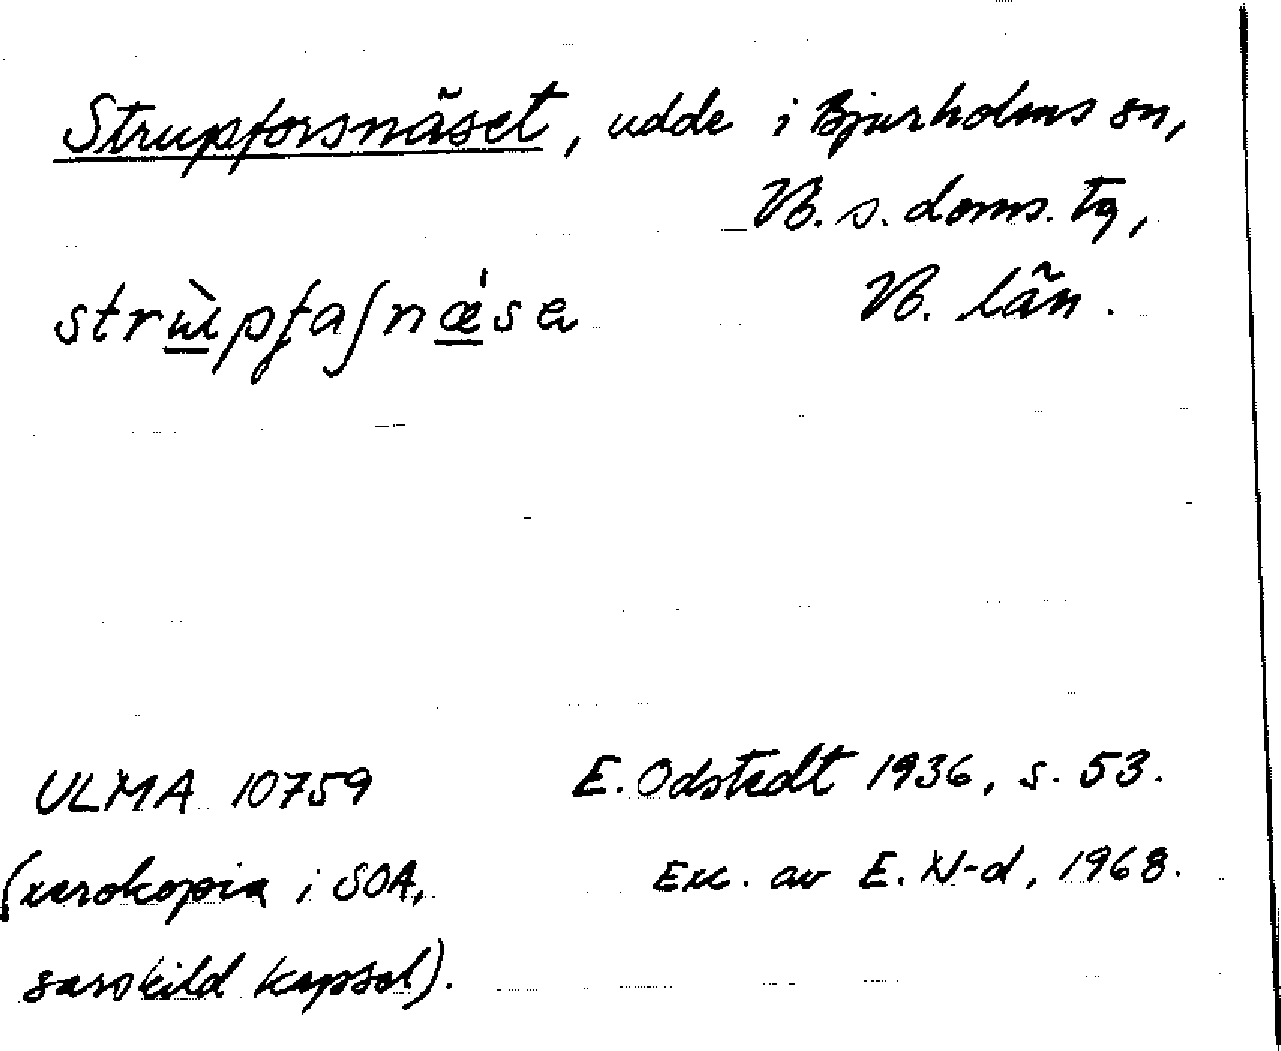 Strupforsnäset, udde i Bjurholms sn,
Vb. s. doms. tg,
strɯ̀pfaʃnǽsa Vb. län.
ULMA 10759 E. Odstedt 1936, s. 53.
(xerokopia i SOA, Exc. av E. N-d, 1968.
särskild kapsel).